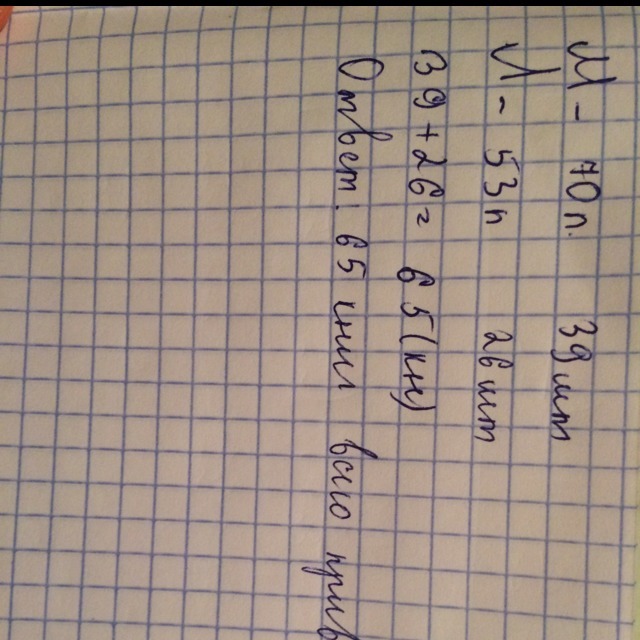 М - 70 п. 39 шт
Л - 53 п 26 шт
39 + 26 = 65 (кн)
Ответ: 65 книг